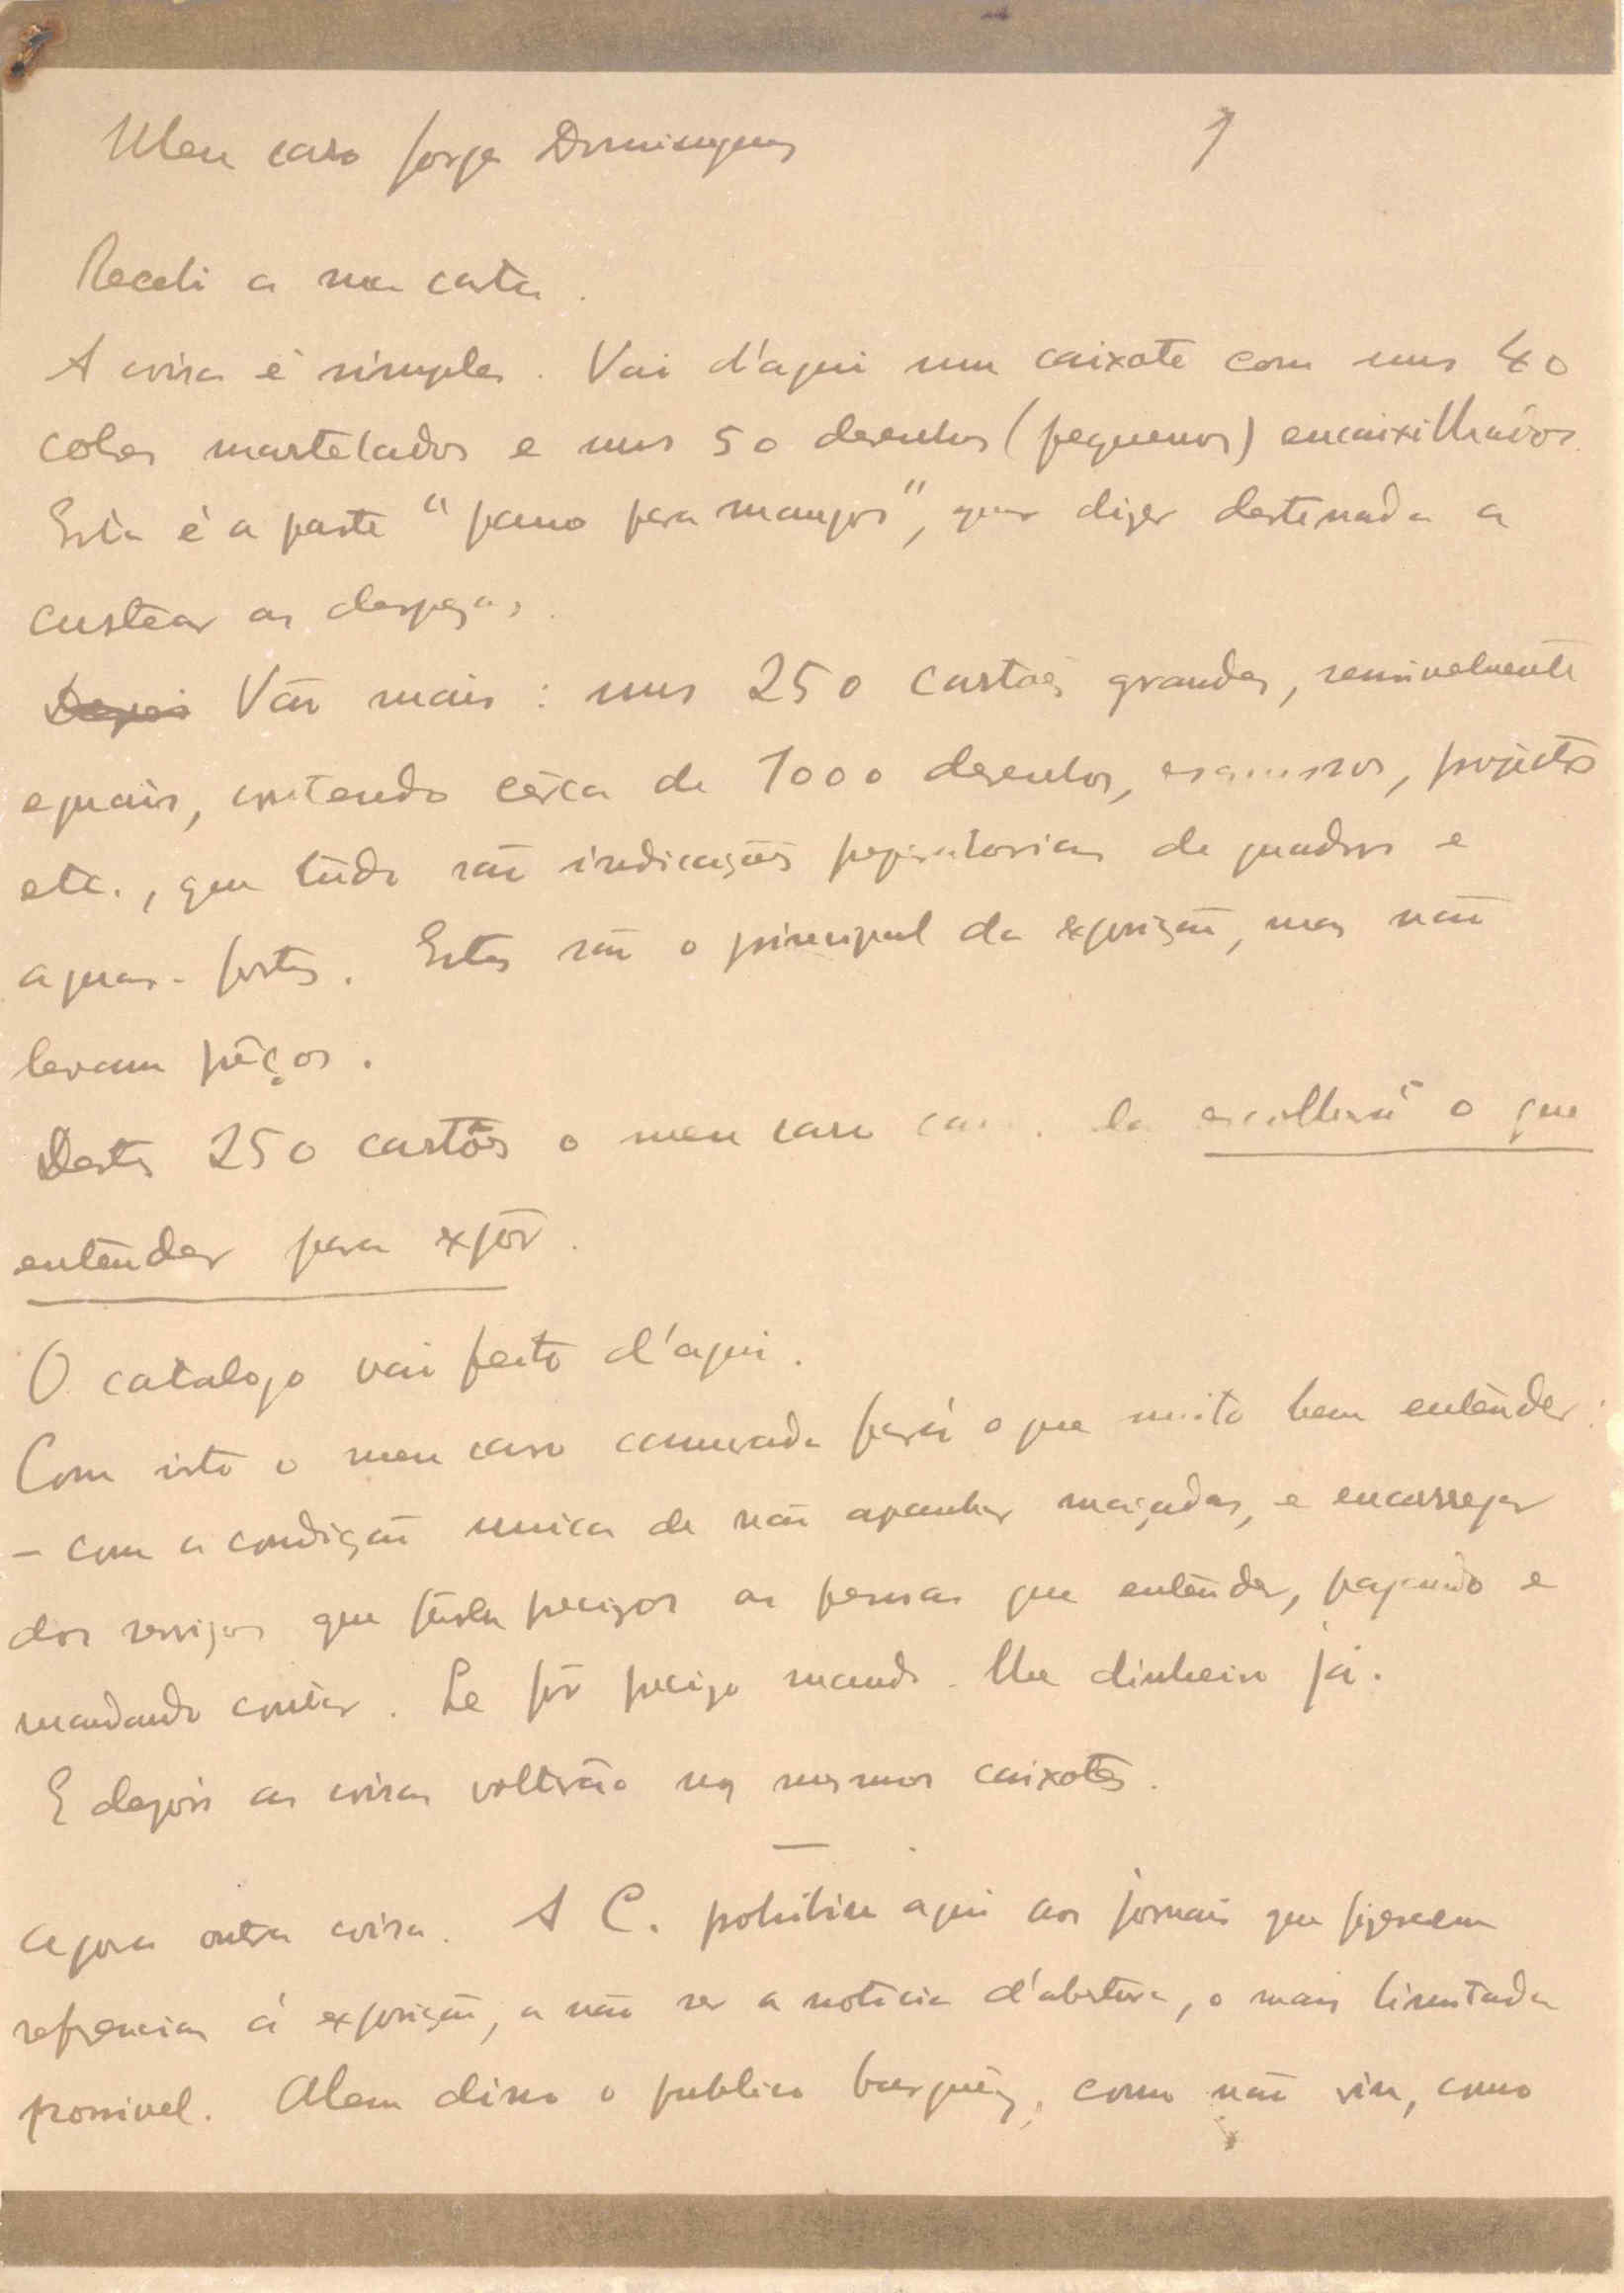 Meu caro Jorge Domingues 1
Recebi a sua carta.
A coisa é simples. Vai d'aqui um caixote com uns 40
cobres martelados e uns 50 desenhos (pequenos) encaixilhados.
Esta é a parte "pano para mangas", quer dizer destinada a
custear as despezas.
Depois Vão mais: uns 250 cartões grandes, sensivelmente
eguais, contendo cêrca de 1000 desenhos, esquissos, projectos
etc., que tudo são indicações preparatorias de quadros e
aguas-fortes. Estes são o principal da exposição, mas não
levam prêços.
Destes 250 cartões o meu caro escolherá o que
entender para expôr.
O catalogo vai feito d'aqui.
Com isto o meu caro camarada fará o que muito bem entender:
— com a condição unica de não apanhar maçadas, e encarregar
dos serviços que forem precizos as pessoas que entender, pagando e
mandando contar. Se fôr precizo mando-lhe dinheiro já.
E depois as coisas voltarão nos mesmos caixotes.
—
Agora outra coisa. A C. prohibiu aqui aos jornais que fizessem
referencias á exposição, a não ser a noticia d'abertura, o mais limitada
possivel. Alem disso o publico burguêz, como não viu, como